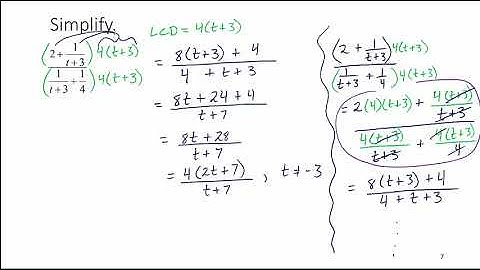 Simplify.
LCD = 4(t+3)
(2 + 1/(t+3)) 4(t+3)
(1/(t+3) + 1/4) 4(t+3)
= (8(t+3) + 4)/(4 + t + 3)
= (8t + 24 + 4)/(t+7)
= (8t + 28)/(t+7)
= 4(2t+7)/(t+7) , t ≠ -3
(2 + 1/(t+3)) 4(t+3)
(1/(t+3) + 1/4) 4(t+3)
= 2(4)(t+3) + 4(t+3)/(t+3)
4(t+3)/(t+3) + 4(t+3)/4
= (8(t+3) + 4)/(4 + t + 3)